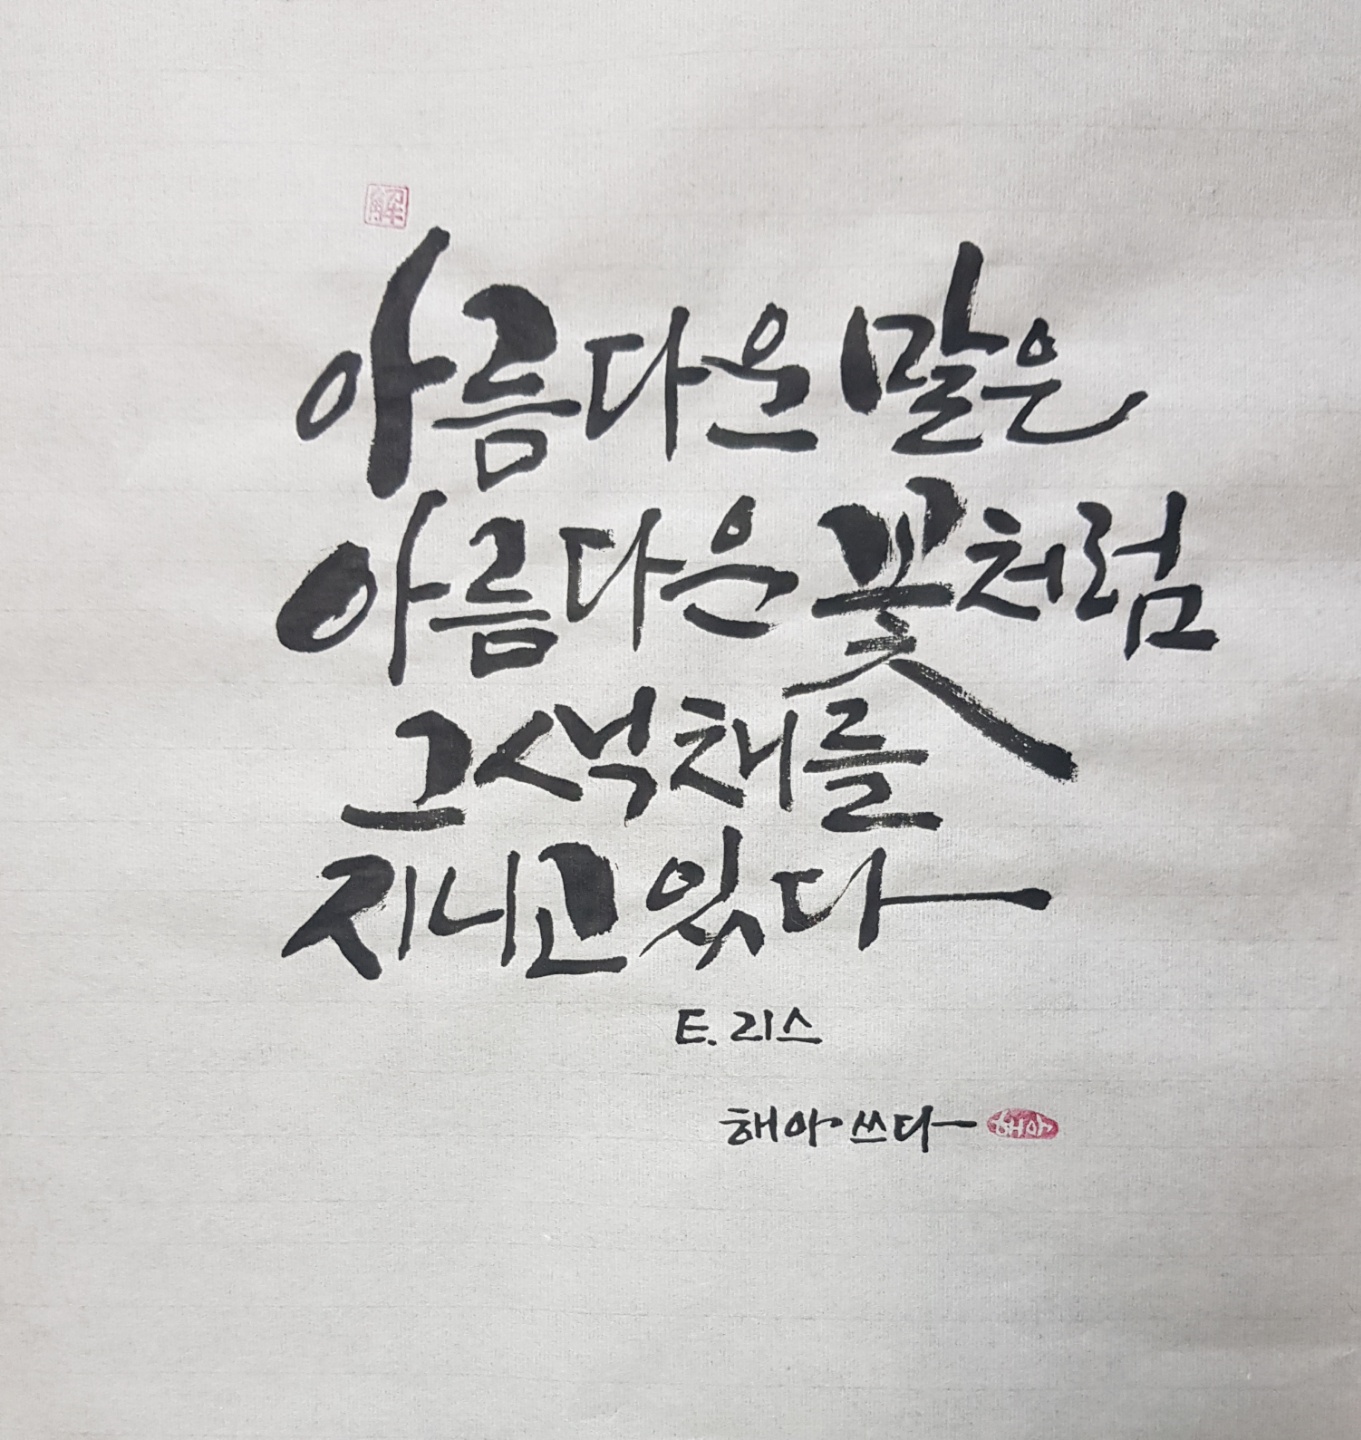 解
아름다운 말은
아름다운 꽃처럼
그 색채를
지니고 있다
E. 리스
해아 쓰다 해아